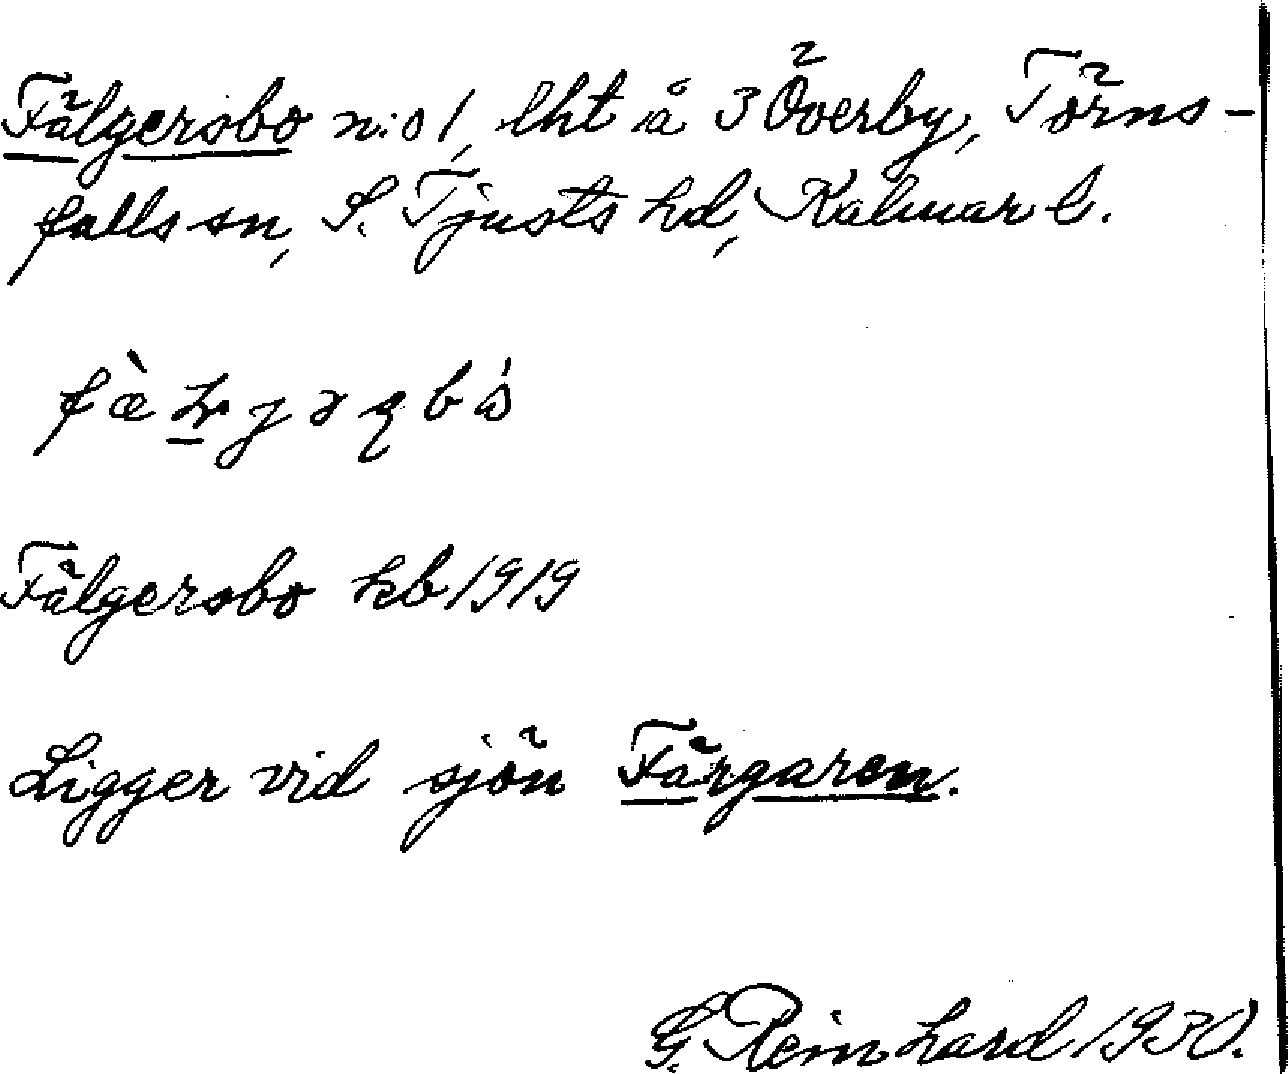 Fälgersbo n:o 1, lht å 3 Överby, Törns-
falls sn, S. Tjusts hd, Kalmar l.
Fälgersbo kb 1919
Ligger vid sjön Färgaren.
G. Reinhard 1930.